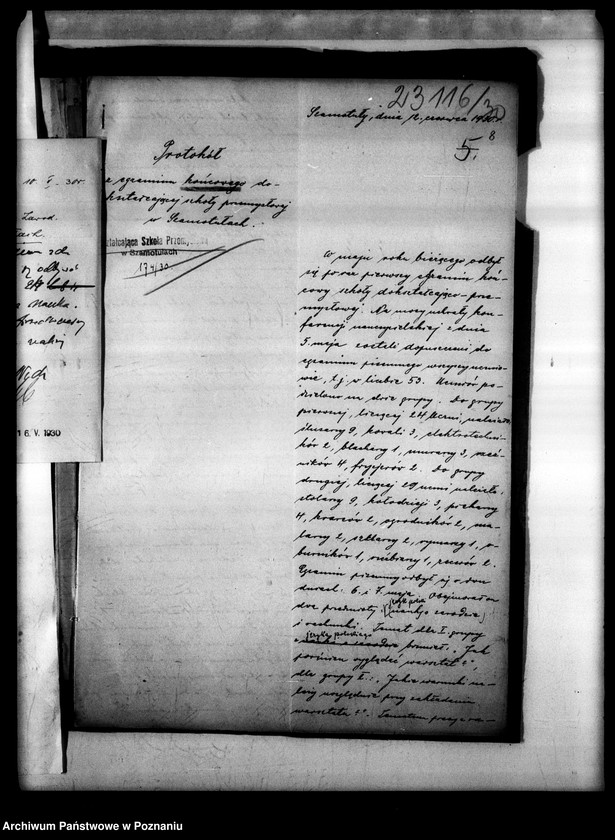 23116/3
Szamotuły, dnia 12. czerwca 19
8
5.
Protokół
z egzaminu końcowego do-
kształcającej szkoły przemysłowej
w Szamotułach.
ształcająca Szkoła Przem.
w Szamotułach
174/30
W maju roku bieżącego odbył
się po raz pierwszy egzamin koń-
cowy szkoły dokształcająco-prze-
mysłowej. Na mocy uchwały kon-
ferencji nauczycielskiej z dnia
5. maja zostali dopuszczeni do
egzaminu pisemnego wszyscy ucznio-
wie, t.j. w liczbie 53. Uczniów po-
dzielono na dwie grupy. Do grupy
pierwszej, liczącej 24 uczni, należeli
ślusarzy 9, kowali 3, elektrotechni-
ków 2, blacharzy 1, murarzy 3,
4, fryzjerów 2. Do grupy
drugiej, liczącej 29 uczni należeli,
stolarzy 9, kołodzieji 3, piekarzy
4, krawców 2, ogrodników 2, ma-
larzy 2, szklarzy 2, rymarzy 1,
1, 1, 2.
Egzamin pisemny odbył się w dwu
dniach: 6. i 7. maja. Obejmował on
język polski
dwa przedmioty, (naukę o zawodzie)
i rachunki. Temat dla I. grupy
języka polskiego
brzmiał: "Jak
powinien wyglądać warsztat?",
dla grupy II.: "Jakie warunki na-
leży uwzględnić przy zakładaniu
warsztatu?". Tematem
10. V. 30r.
Zawod.
nauka.
16. V. 1930
Archiwum Państwowe w Poznaniu